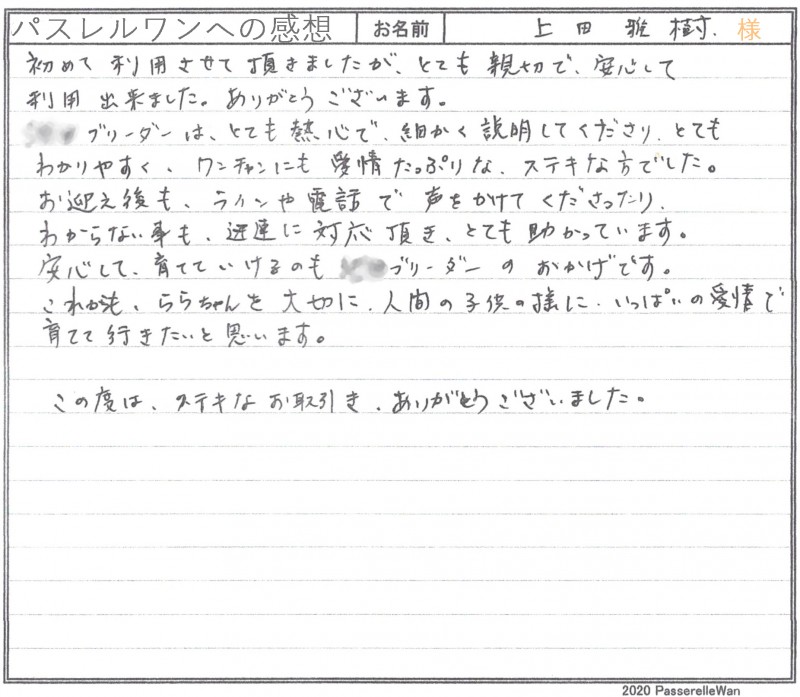 パスレルワンへの感想 お名前 上田 雅樹. 様
初めて利用させて頂きましたが、とても親切で、安心して
利用出来ました。ありがとうございます。
ブリーダーは、とても熱心で、細かく説明してくださり、とても
わかりやすく、ワンチャンにも愛情たっぷりな、ステキな方でした。
お迎え後も、ラインや電話で声をかけてくださったり、
わからない事も、迅速に対応頂き、とても助かっています。
安心して、育てていけるのもブリーダーのおかげです。
これからも、ららちゃんを大切に、人間の子供の様に、いっぱいの愛情で
育てて行きたいと思います。
この度は、ステキなお取引き、ありがとうございました。
2020 PasserelleWan